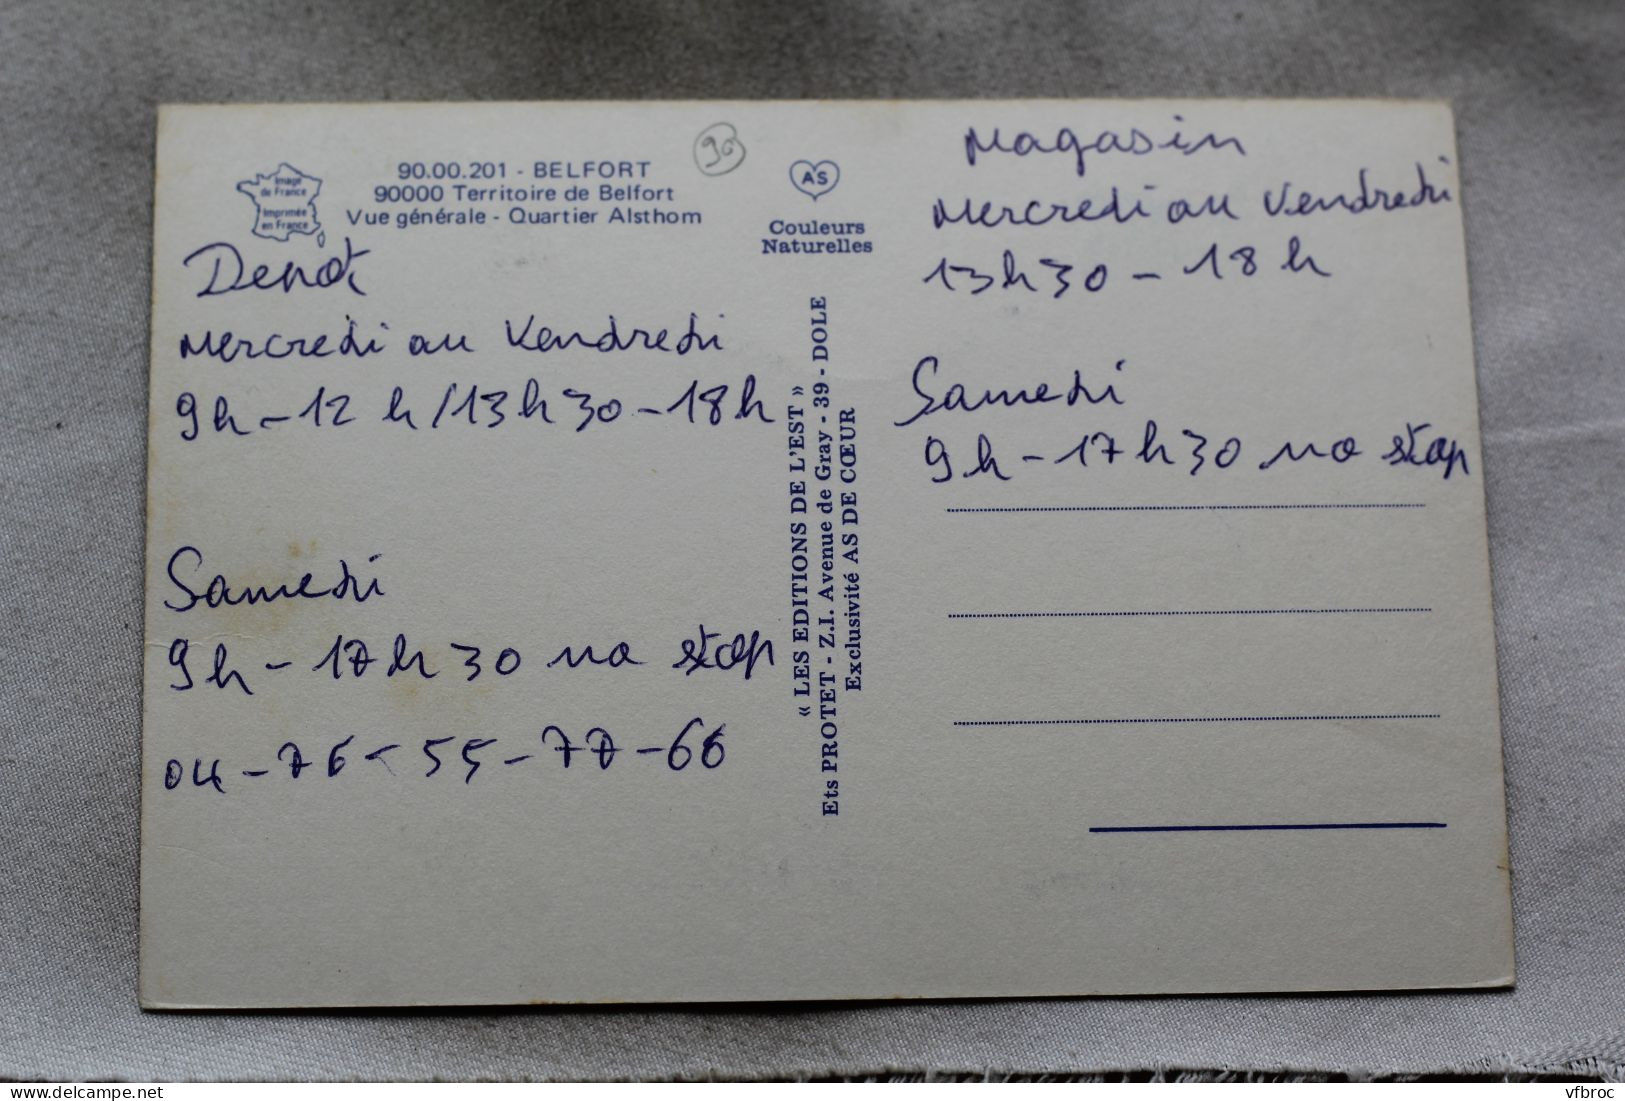 Image
de France
Imprimée
en France
90.00.201 - BELFORT
90000 Territoire de Belfort
Vue générale - Quartier Alsthom
90
AS
Couleurs
Naturelles
Depot
Mercredi au Vendredi
9h - 12 h / 13h30 - 18h
Samedi
9h - 17h30 no stop
04 - 76 - 55 - 77 - 66
« LES EDITIONS DE L'EST »
Ets PROTET - Z.I. Avenue de Gray - 39 - DOLE
Exclusivité AS DE CŒUR
Magasin
Mercredi au Vendredi
13h30 - 18 h
Samedi
9h - 17h30 no stop
vfbroc